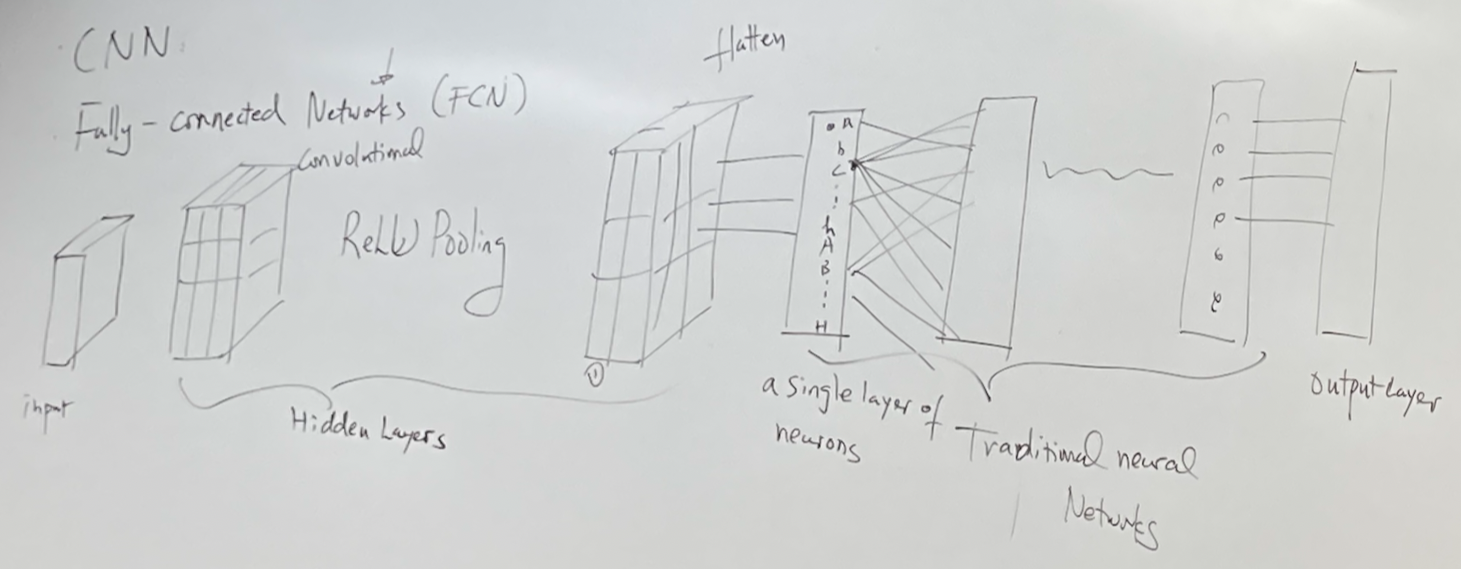 CNN
Fully-connected Networks (FCN)
Convolutional
flatten
ReLU Pooling
input
Hidden Layers
①
A
b
c
h
A
B
H
a single layer of
neurons
Traditional neural
Networks
output Layer